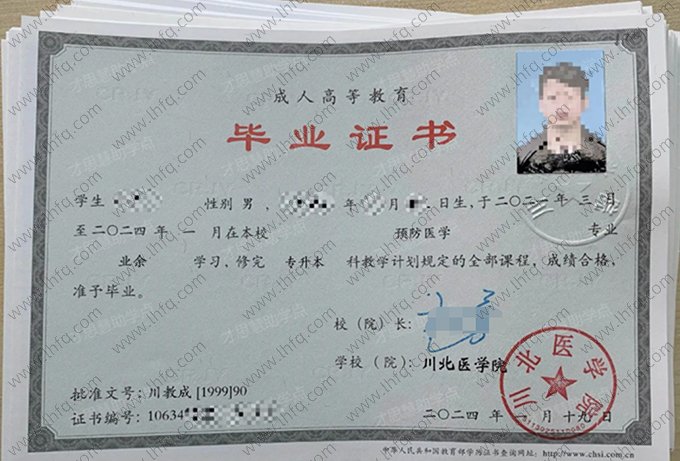 成人高等教育
毕业证书
学生 性别 男 , 年 月 日生,于二〇二一年 三 月
至二〇二四年 一 月在本校 预防医学 专业
业余 学习、修完 专升本 科教学计划规定的全部课程,成绩合格,
准予毕业。
校(院)长:
学校(院):川北医学院
川北医学院
批准文号:川教成 [1999]90
证书编号:10634
二〇二四年 一 月十九日
中华人民共和国教育部学历证书查询网址:http://www.chsi.com.cn
www.lhfq.com